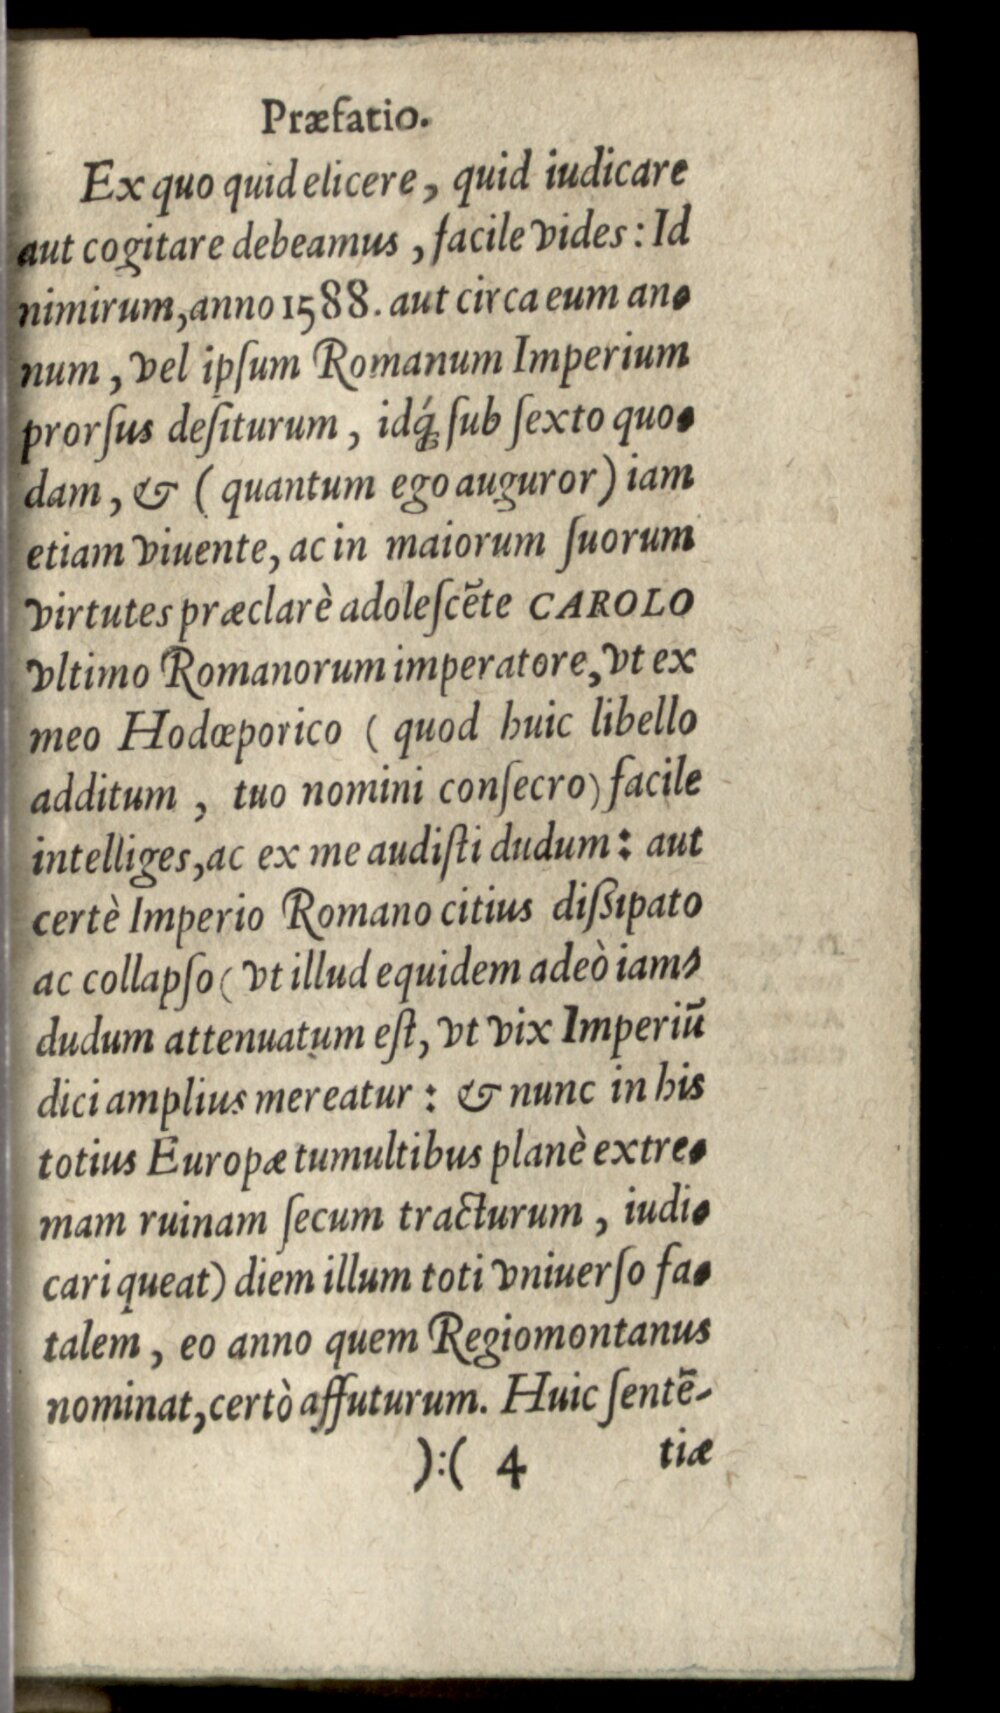 Præfatio.
Ex quo quid elicere, quid iudicare
aut cogitare debeamus, facile vides: Id
nimirum, anno 1588. aut circa eum an-
num, vel ipſum Romanum Imperium
prorſus deſiturum, idq́; ſub ſexto quo-
dam, & (quantum ego auguror) iam
etiam viuente, ac in maiorum ſuorum
virtutes præclarè adoleſcēte CAROLO
vltimo Romanorum imperatore, vt ex
meo Hodœporico (quod huic libello
additum, tuo nomini conſecro) facile
intelliges, ac ex me audiſti dudum: aut
certè Imperio Romano citius diſſipato
ac collapſo (vt illud equidem adeò iam-
dudum attenuatum eſt, vt vix Imperiū
dici amplius mereatur: & nunc in his
totius Europæ tumultibus planè extre-
mam ruinam ſecum tracturum, iudi-
cari queat) diem illum toti vniuerſo fa-
talem, eo anno quem Regiomontanus
nominat, certò affuturum. Huic ſentē-
):( 4 tiæ